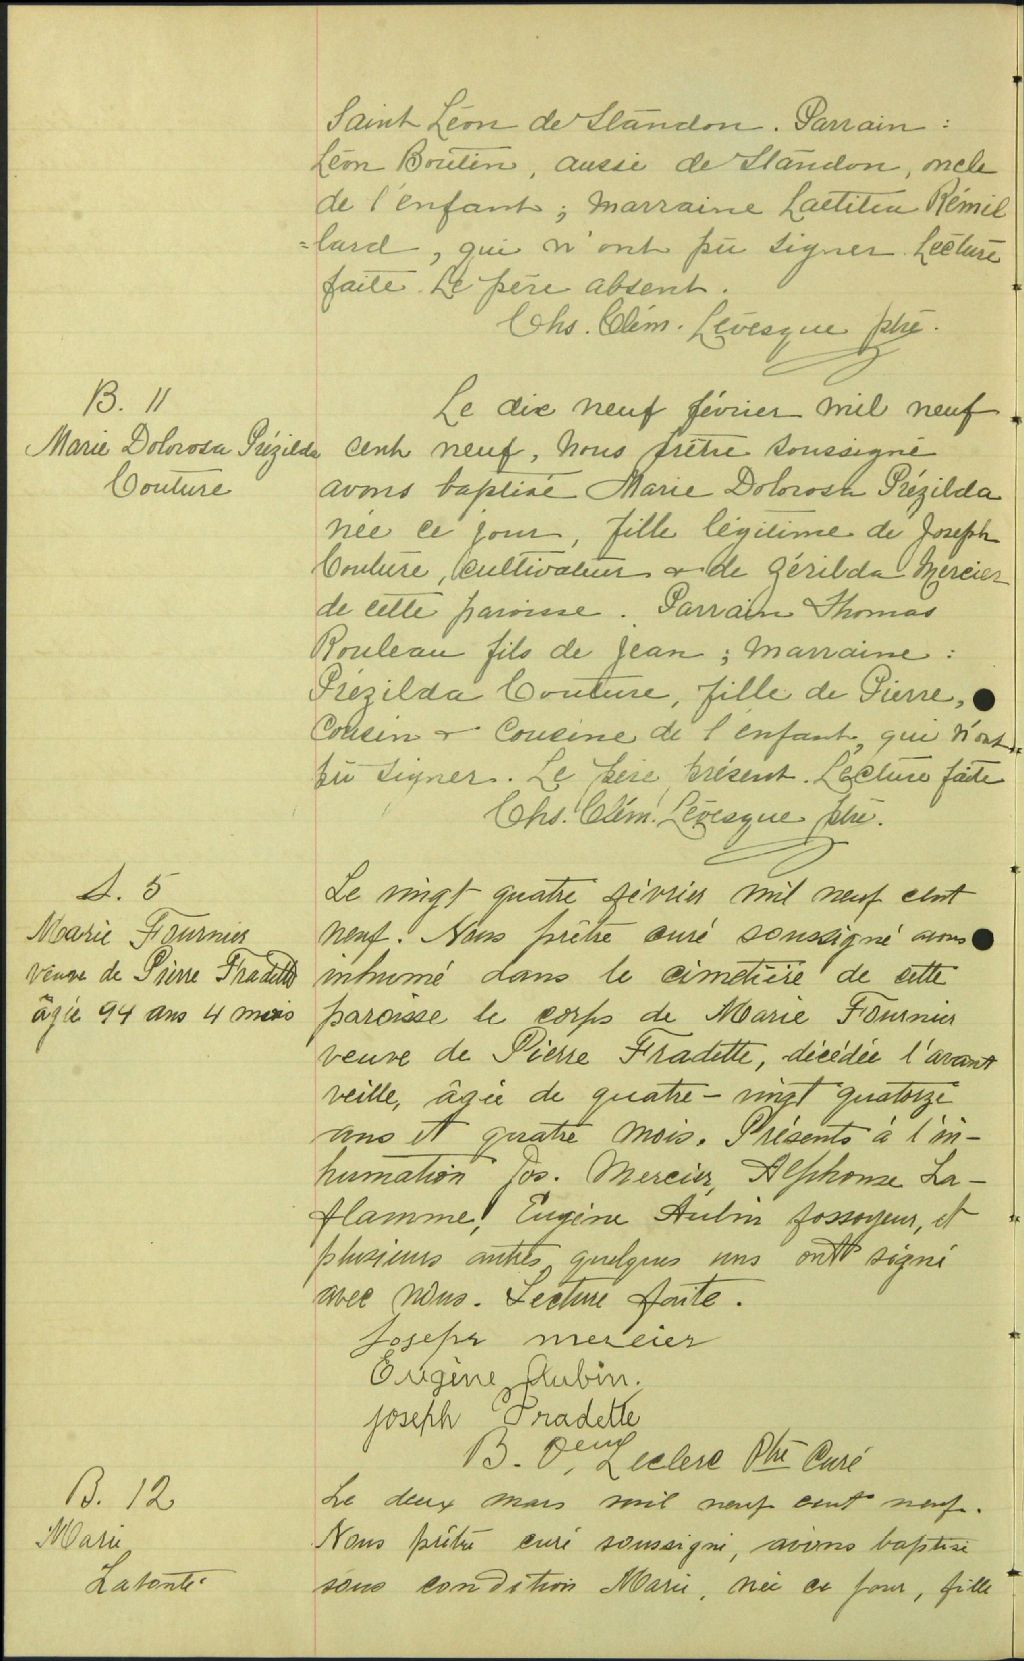 Saint Léon de Standon. Parrain :
Léon Boutin, aussi de Standon, oncle
de l'enfant ; marraine Laetitia Rémil
=lard, qui n'ont pu signer. Lecture
faite. Le père absent.
Chs. Clém. Lévesque ptre.
B. 11
Marie Dolorosa Prézilda
Couture
Le dix neuf février mil neuf
cent neuf, Nous prêtre soussigné
avons baptisé Marie Dolorosa Prézilda
née ce jour, fille légitime de Joseph
Couture, cultivateur & de Gérilda Mercier
de cette paroisse. Parrain Thomas
Rouleau fils de Jean ; marraine :
Prézilda Couture, fille de Pierre,
Cousin & Cousine de l'enfant, qui n'ont
pu signer. Le père présent. Lecture faite
Chs. Clém. Lévesque ptre.
S. 5
Marie Fournier
veuve de Pierre Fradette
âgée 94 ans 4 mois
Le vingt quatre février mil neuf cent
neuf. Nous prêtre curé soussigné avons
inhumé dans le cimetière de cette
paroisse le corps de Marie Fournier
veuve de Pierre Fradette, décédée l'avant
veille, âgée de quatre-vingt quatorze
ans et quatre mois. Présents à l'in-
humation Jos. Mercier, Alphonse La-
flamme, Eugène Aubin fossoyeur, et
plusieurs autres, quelques uns ont signé
avec nous. Lecture faite.
Joseph mercier
Eugène Aubin.
Joseph Fradette
B. Leclerc Ptre Curé
B. 12
Marie
Lafonté
Le deux mars mil neuf cent neuf.
Nous prêtre curé soussigné, avons baptisé
sous condition Marie, née ce jour, fille